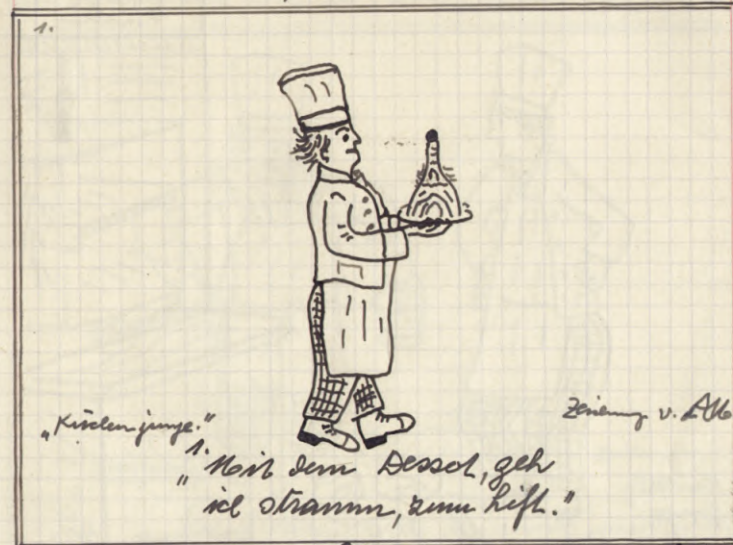 1.
„Küchenjunge."
Zeichnung v.
1.
„Mit dem Dessot, geh
ich stramm, zum Lift."